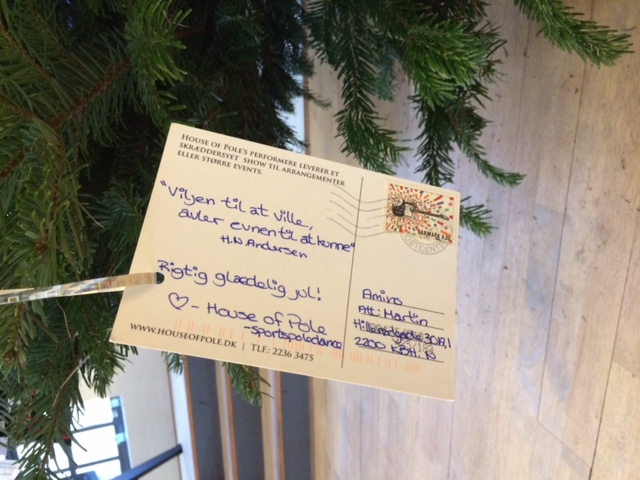 HOUSE OF POLE'S PERFORMERE LEVERER ET
SKRÆDDERSYET SHOW TIL ARRANGEMENTER
ELLER STØRRE EVENTS.
"Viljen til at ville,
avler evnen til at kunne"
H.N Andersen
Rigtig glædelig jul!
♡ - House of Pole
- Sportspoledance
WWW.HOUSEOFPOLE.DK | TLF.: 2236 3475
DANMARK
POSTCENTER
Amino
Att: Martin
2200 KBH. N